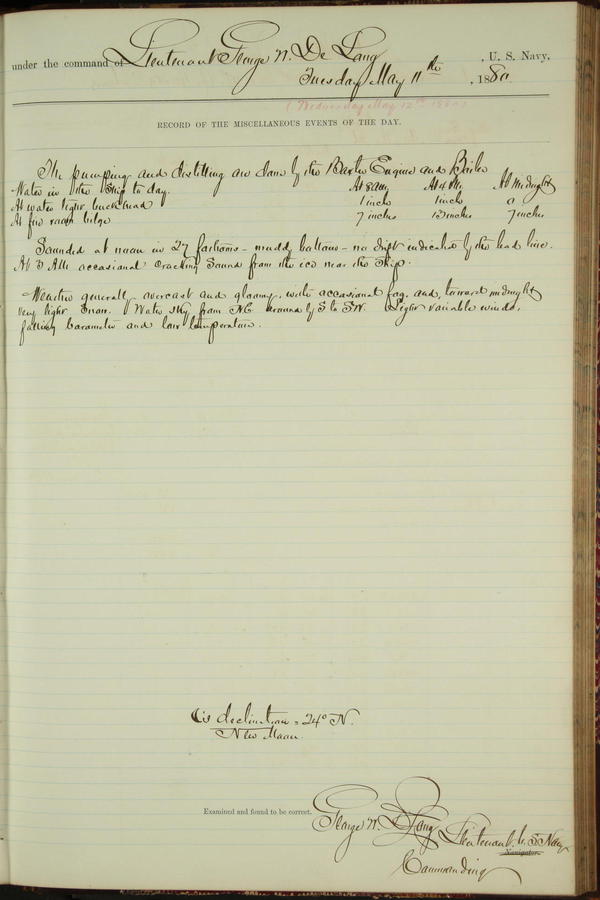 under the command of Lieutenant George W. De Long, U. S. Navy,
Tuesday May 11th, 1880
(Wednesday May 12th 1880)
RECORD OF THE MISCELLANEOUS EVENTS OF THE DAY.
The pumping and distilling are done by the Baxter Engine and Boiler
Water in the Ship to day. At 8 AM, At 4 PM. At Midnight
At water tight buckhead 1 inch 1 inch 0
At fire room bilge 7 inches 13 inches 7 inches
Sounded at noon in 27 fathoms - muddy bottom - no drift indicated by the lead line.
At 3 AM occasional cracking sound from the ice near the Ship.
Weather generally overcast and gloomy, with occasional fog, and, toward midnight
very light Snow. Water sky from NE around by S to SW. Light variable winds,
falling barometer and low temperature.
☾'s declination = 24° N.
New Moon.
Examined and found to be correct.
George W. De Long Lieutenant U. S Navy
Navigator.
Commanding